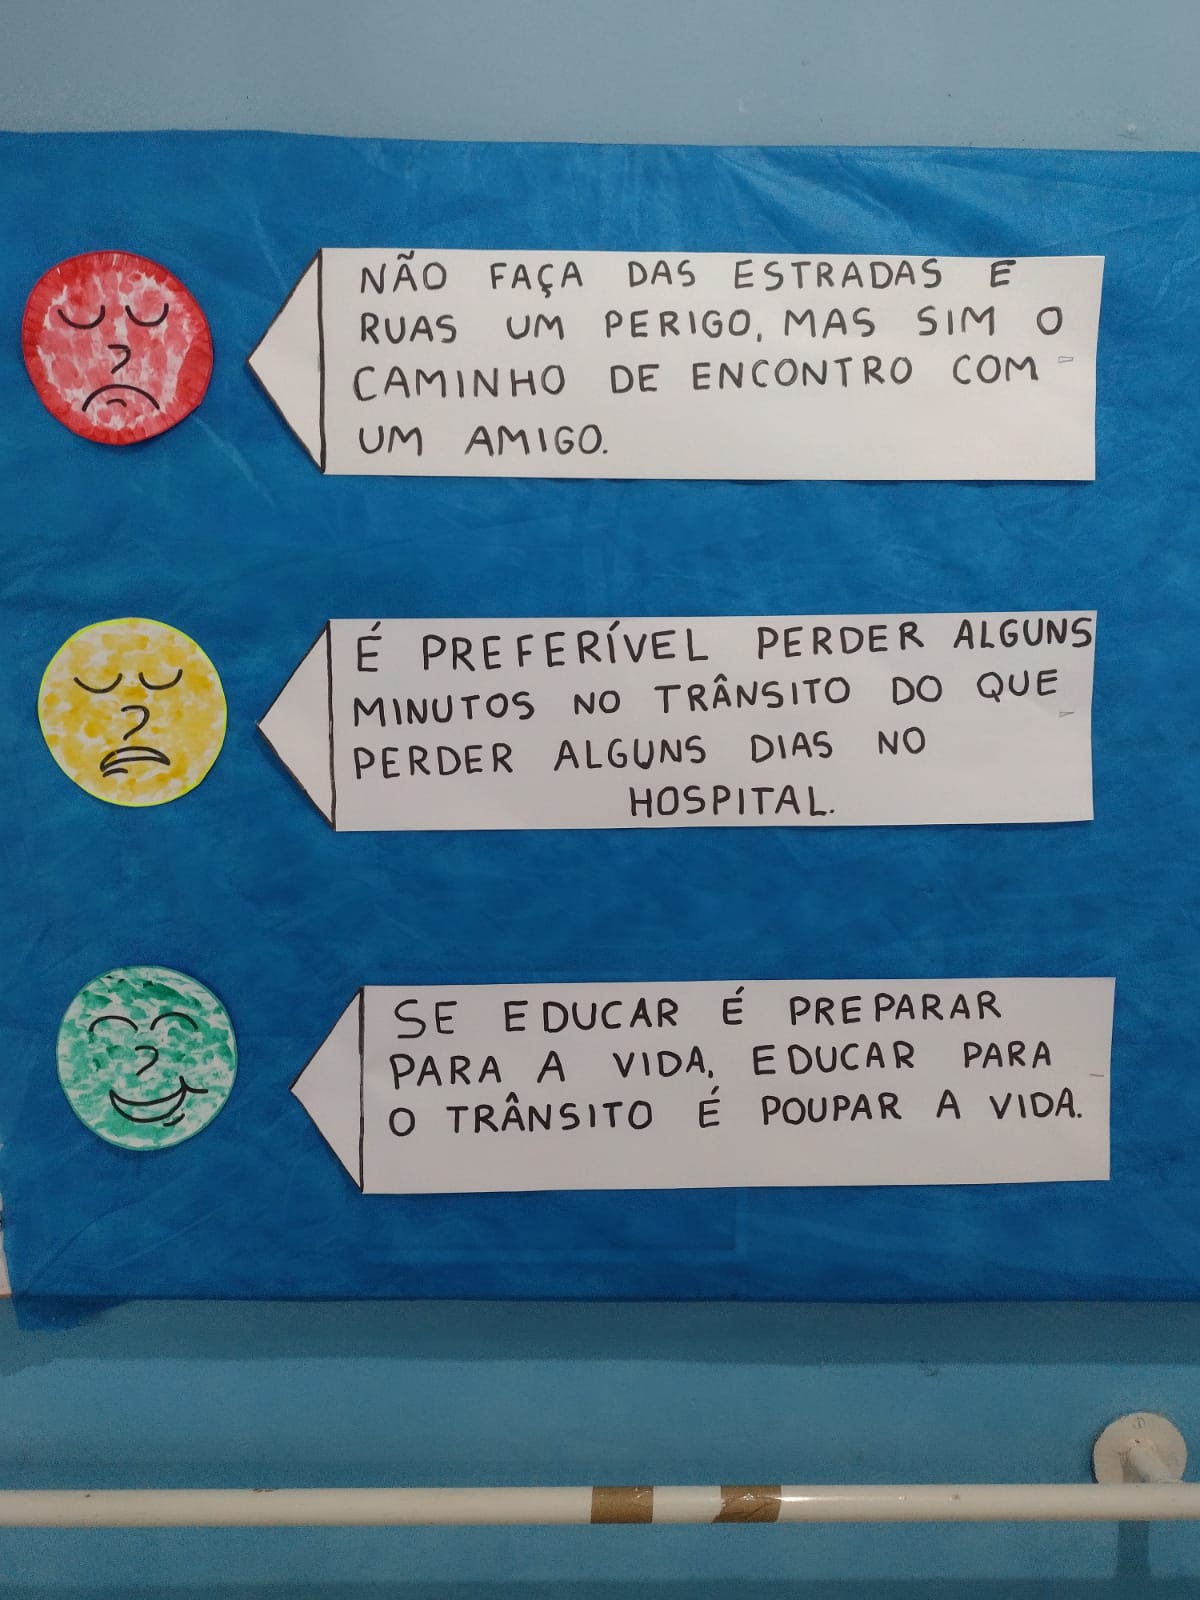 NÃO FAÇA DAS ESTRADAS E
RUAS UM PERIGO, MAS SIM O
CAMINHO DE ENCONTRO COM
UM AMIGO.
É PREFERÍVEL PERDER ALGUNS
MINUTOS NO TRÂNSITO DO QUE
PERDER ALGUNS DIAS NO
HOSPITAL.
SE EDUCAR É PREPARAR
PARA A VIDA, EDUCAR PARA
O TRÂNSITO É POUPAR A VIDA.